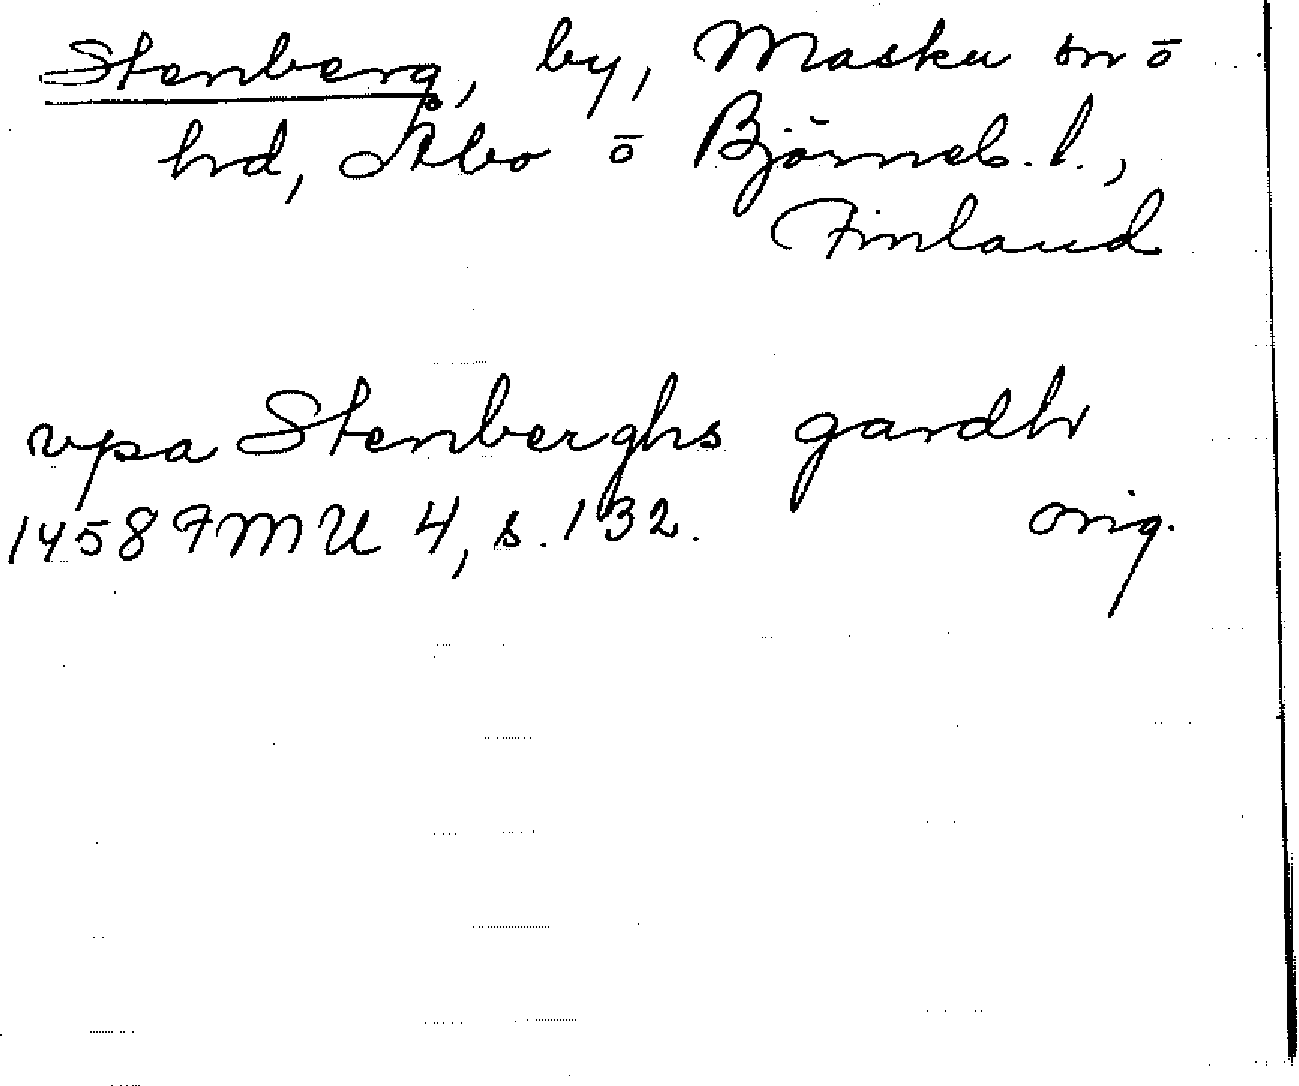 Stenberg, by, Masku sn ō
hd, Åbo ō Björneb. l.,
Finland
vpa Stenberghs gardh
1458 FMU 4, s. 132. orig.